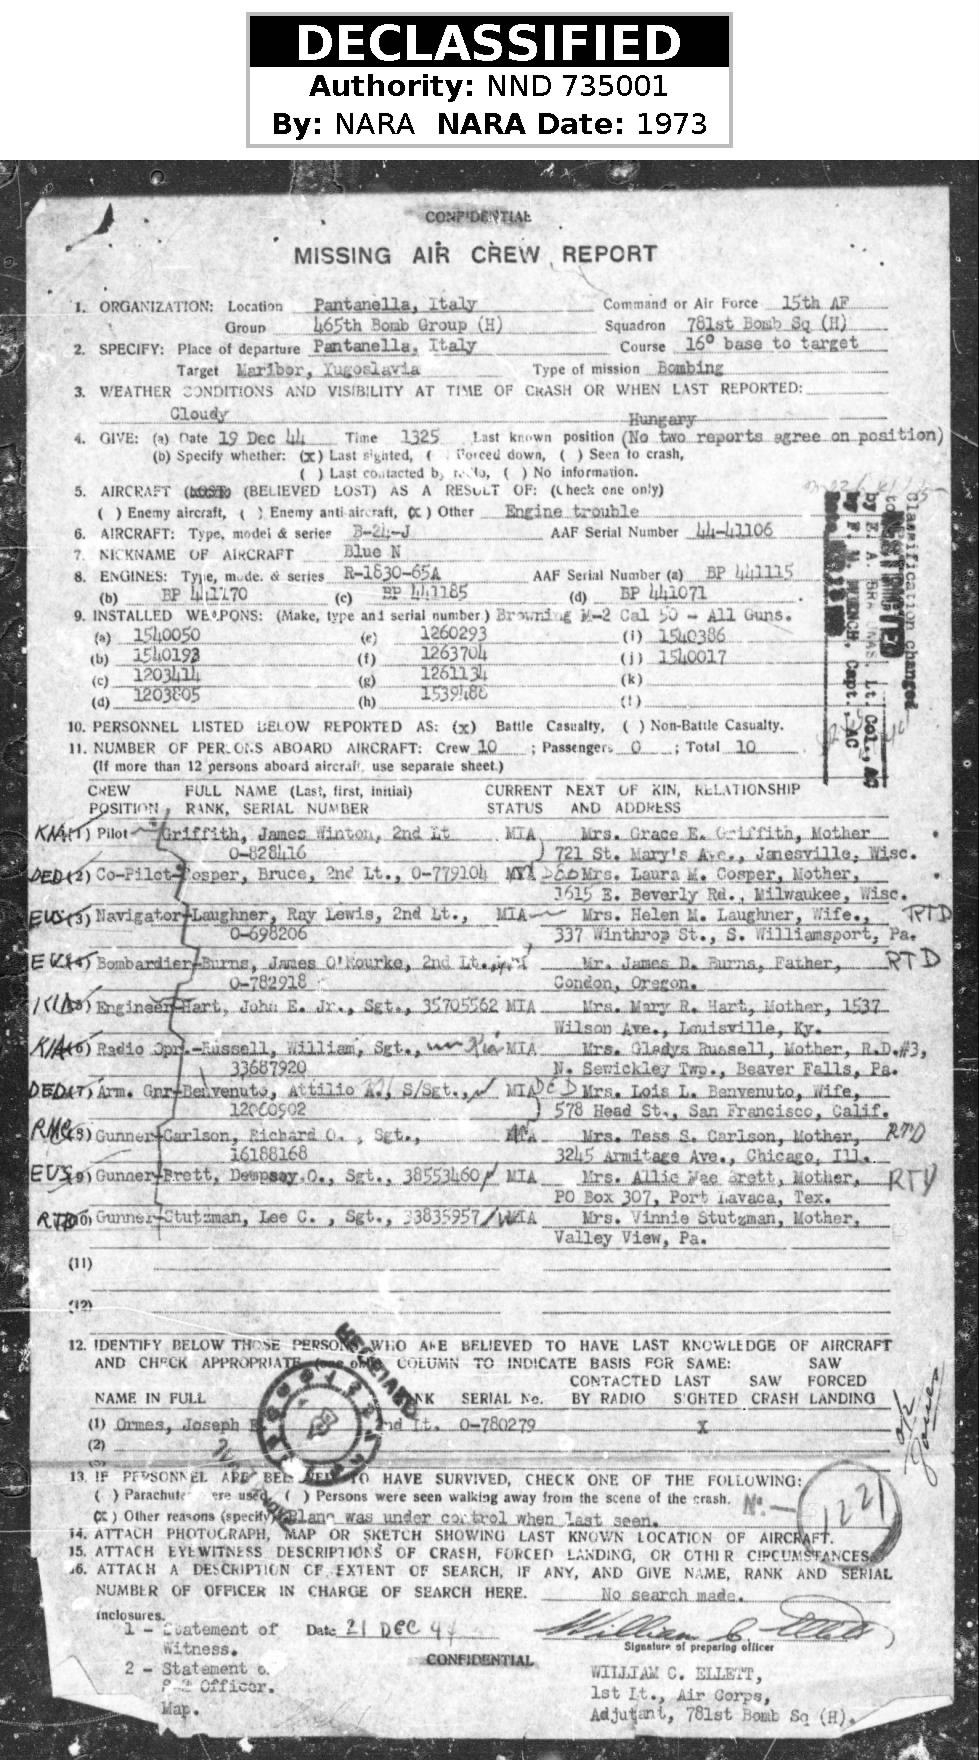 DECLASSIFIED
Authority: NND 735001
By: NARA NARA Date: 1973
CONFIDENTIAL
MISSING AIR CREW REPORT
1. ORGANIZATION: Location Pantanella, Italy Command or Air Force 15th AF
Group 465th Bomb Group (H) Squadron 781st Bomb Sq (H)
2. SPECIFY: Place of departure Pantanella, Italy Course 16° base to target
Target Maribor, Yugoslavia Type of mission Bombing
3. WEATHER CONDITIONS AND VISIBILITY AT TIME OF CRASH OR WHEN LAST REPORTED:
Cloudy Hungary
4. GIVE: (a) Date 19 Dec 44 Time 1325 Last known position (No two reports agree on position)
(b) Specify whether: (x) Last sighted, ( ) Forced down, ( ) Seen to crash,
( ) Last contacted by radio, ( ) No information.
5. AIRCRAFT (LOST) (BELIEVED LOST) AS A RESULT OF: (Check one only)
( ) Enemy aircraft, ( ) Enemy anti-aircraft, (x) Other Engine trouble
6. AIRCRAFT: Type, model & series B-24-J AAF Serial Number 44-41106
7. NICKNAME OF AIRCRAFT Blue N
8. ENGINES: Type, mode. & series R-1830-65A AAF Serial Number (a) BP 441115
(b) BP 441170 (c) BP 441185 (d) BP 441071
9. INSTALLED WEAPONS: (Make, type and serial number) Browning M-2 Cal 50 - All Guns.
(a) 1540050 (e) 1260293 (i) 1540386
(b) 1540193 (f) 1263704 (j) 1540017
(c) 1203414 (g) 1261134 (k)
(d) 1203805 (h) 1539486 (l)
Classification changed
by E. A. BRADUNAS, Lt. Col., AC
by F. M. MUENCH, Capt. AC
10. PERSONNEL LISTED BELOW REPORTED AS: (x) Battle Casualty, ( ) Non-Battle Casualty.
11. NUMBER OF PERSONS ABOARD AIRCRAFT: Crew 10 ; Passengers 0 ; Total 10
(If more than 12 persons aboard aircraft, use separate sheet.)
CREW FULL NAME (Last, first, initial) CURRENT NEXT OF KIN, RELATIONSHIP
POSITION RANK, SERIAL NUMBER STATUS AND ADDRESS
KIA (1) Pilot Griffith, James Winton, 2nd Lt MIA Mrs. Grace E. Griffith, Mother
O-828416 721 St. Mary's Ave., Janesville, Wisc.
DED (2) Co-Pilot-Cosper, Bruce, 2nd Lt., O-779104 MIA DED Mrs. Laura M. Cosper, Mother,
1615 E. Beverly Rd., Milwaukee, Wisc.
EUS (3) Navigator-Laughner, Ray Lewis, 2nd Lt., MIA Mrs. Helen M. Laughner, Wife., RTD
O-698206 337 Winthrop St., S. Williamsport, Pa.
EUS (4) Bombardier-Burns, James O'Rourke, 2nd Lt., Mr. James D. Burns, Father, RTD
O-782918 Condon, Oregon.
KIA (5) Engineer-Hart, John E. Jr., Sgt., 35705562 MIA Mrs. Mary R. Hart, Mother, 1537
Wilson Ave., Louisville, Ky.
KIA (6) Radio Opr.-Russell, William, Sgt., MIA Mrs. Gladys Russell, Mother, R.D.#3,
33687920 N. Sewickley Twp., Beaver Falls, Pa.
DED (7) Arm. Gnr-Benvenuto, Attilio R., S/Sgt., MIA DED Mrs. Lois L. Benvenuto, Wife,
12060902 578 Head St., San Francisco, Calif.
RMC (8) Gunner-Carlson, Richard O. , Sgt., MIA Mrs. Tess S. Carlson, Mother, RTD
16188168 3245 Armitage Ave., Chicago, Ill.
EUS (9) Gunner-Brett, Dempsey.O., Sgt., 38553460 MIA Mrs. Allie Mae Brett, Mother, RTD
PO Box 307, Port Lavaca, Tex.
RTD (10) Gunner-Stutzman, Lee C. , Sgt., 33835957 MIA Mrs. Vinnie Stutzman, Mother,
Valley View, Pa.
(11)
(12)
12. IDENTIFY BELOW THOSE PERSONS WHO ARE BELIEVED TO HAVE LAST KNOWLEDGE OF AIRCRAFT
AND CHECK APPROPRIATE COLUMN TO INDICATE BASIS FOR SAME: SAW
CONTACTED LAST SAW FORCED
NAME IN FULL RANK SERIAL No. BY RADIO SIGHTED CRASH LANDING
(1) Ormes, Joseph 2nd Lt. O-780279 X
(2)
(3)
13. IF PERSONNEL ARE BELIEVED TO HAVE SURVIVED, CHECK ONE OF THE FOLLOWING:
( ) Parachutes were used, ( ) Persons were seen walking away from the scene of the crash. No. 1221
(x) Other reasons (specify) Plane was under control when last seen.
14. ATTACH PHOTOGRAPH, MAP OR SKETCH SHOWING LAST KNOWN LOCATION OF AIRCRAFT.
15. ATTACH EYEWITNESS DESCRIPTIONS OF CRASH, FORCED LANDING, OR OTHER CIRCUMSTANCES
16. ATTACH A DESCRIPTION OF EXTENT OF SEARCH, IF ANY, AND GIVE NAME, RANK AND SERIAL
NUMBER OF OFFICER IN CHARGE OF SEARCH HERE. No search made.
Inclosures.
1 - Statement of Date 21 DEC 44 William C. Ellett
Witness. Signature of preparing officer
CONFIDENTIAL
2 - Statement of WILLIAM C. ELLETT,
S-2 Officer. 1st Lt., Air Corps,
Map. Adjutant, 781st Bomb Sq (H).